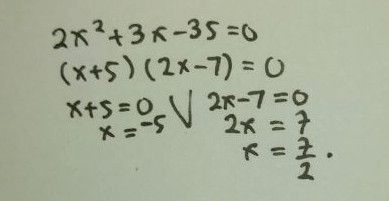 2x²+3x-35=0
(x+5)(2x-7)=0
x+5=0 ∨ 2x-7=0
x=-5 2x=7
x=7/2.